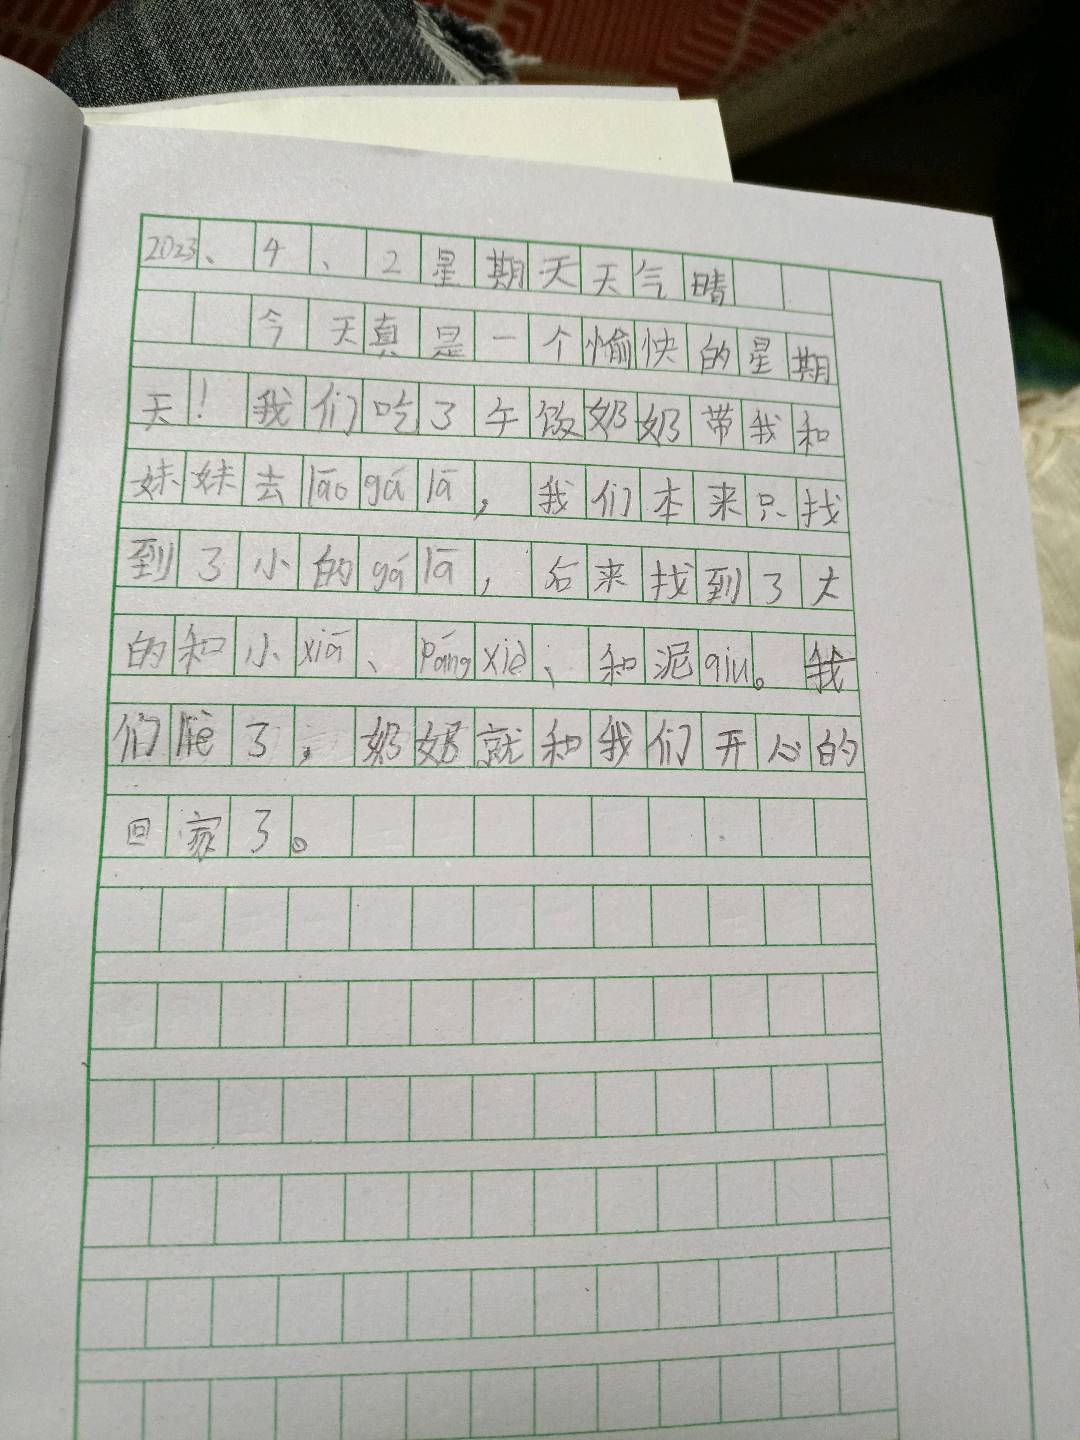 2023、4、2星期天天气晴
今天真是一个愉快的星期
天！我们吃了午饭奶奶带我和
妹妹去lāo gá lā，我们本来只找
到了小的gá lā，后来找到了大
的和小xiā、páng xiè、和泥qiu。我
们lèi了，奶奶就和我们开心的
回家了。